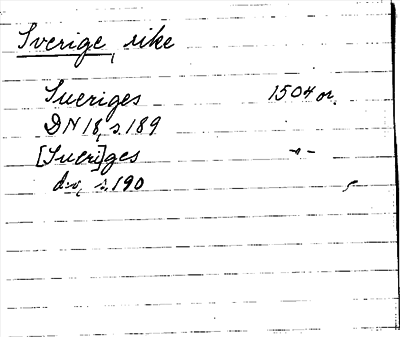 Sverige, rike
Sueriges 1504 or.
DN 18, s. 189
[Sueri]ges -"-
d:o, s. 190